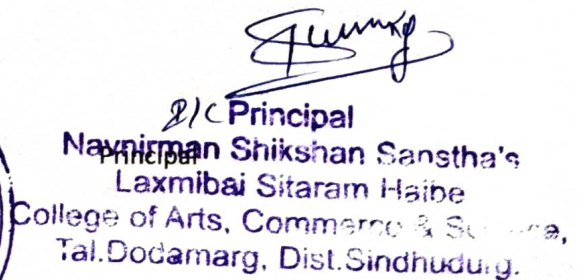 I/C Principal
Navnirman Shikshan Sanstha's
Principal
Laxmibai Sitaram Halbe
College of Arts, Commerce & Science,
Tal.Dodamarg, Dist.Sindhudurg.